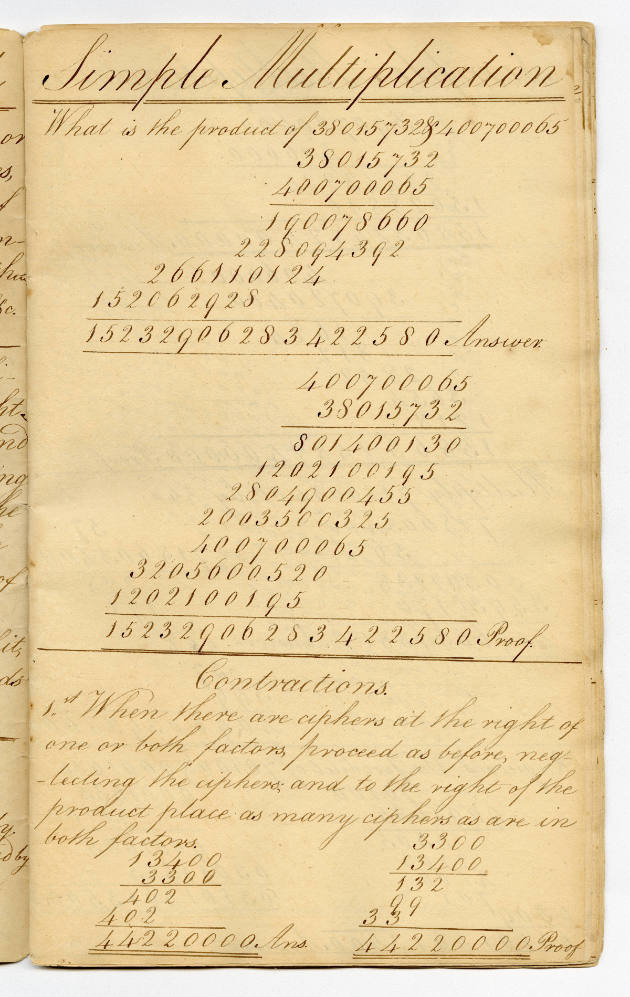 Simple Multiplication
What is the product of 38015732 & 400700065
38015732
400700065
190078660
228094392
266110124
152062928
15232906283422580 Answer.
400700065
38015732
801400130
1202100195
2804900455
2003500325
400700065
3205600520
1202100195
15232906283422580 Proof.
Contractions.
1.st When there are ciphers at the right of
one or both factors, proceed as before, neg-
-lecting the ciphers; and to the right of the
product place as many ciphers as are in
both factors.
13400
3300
402
402
44220000 Ans.
3300
13400
132
99
33
44220000 Proof